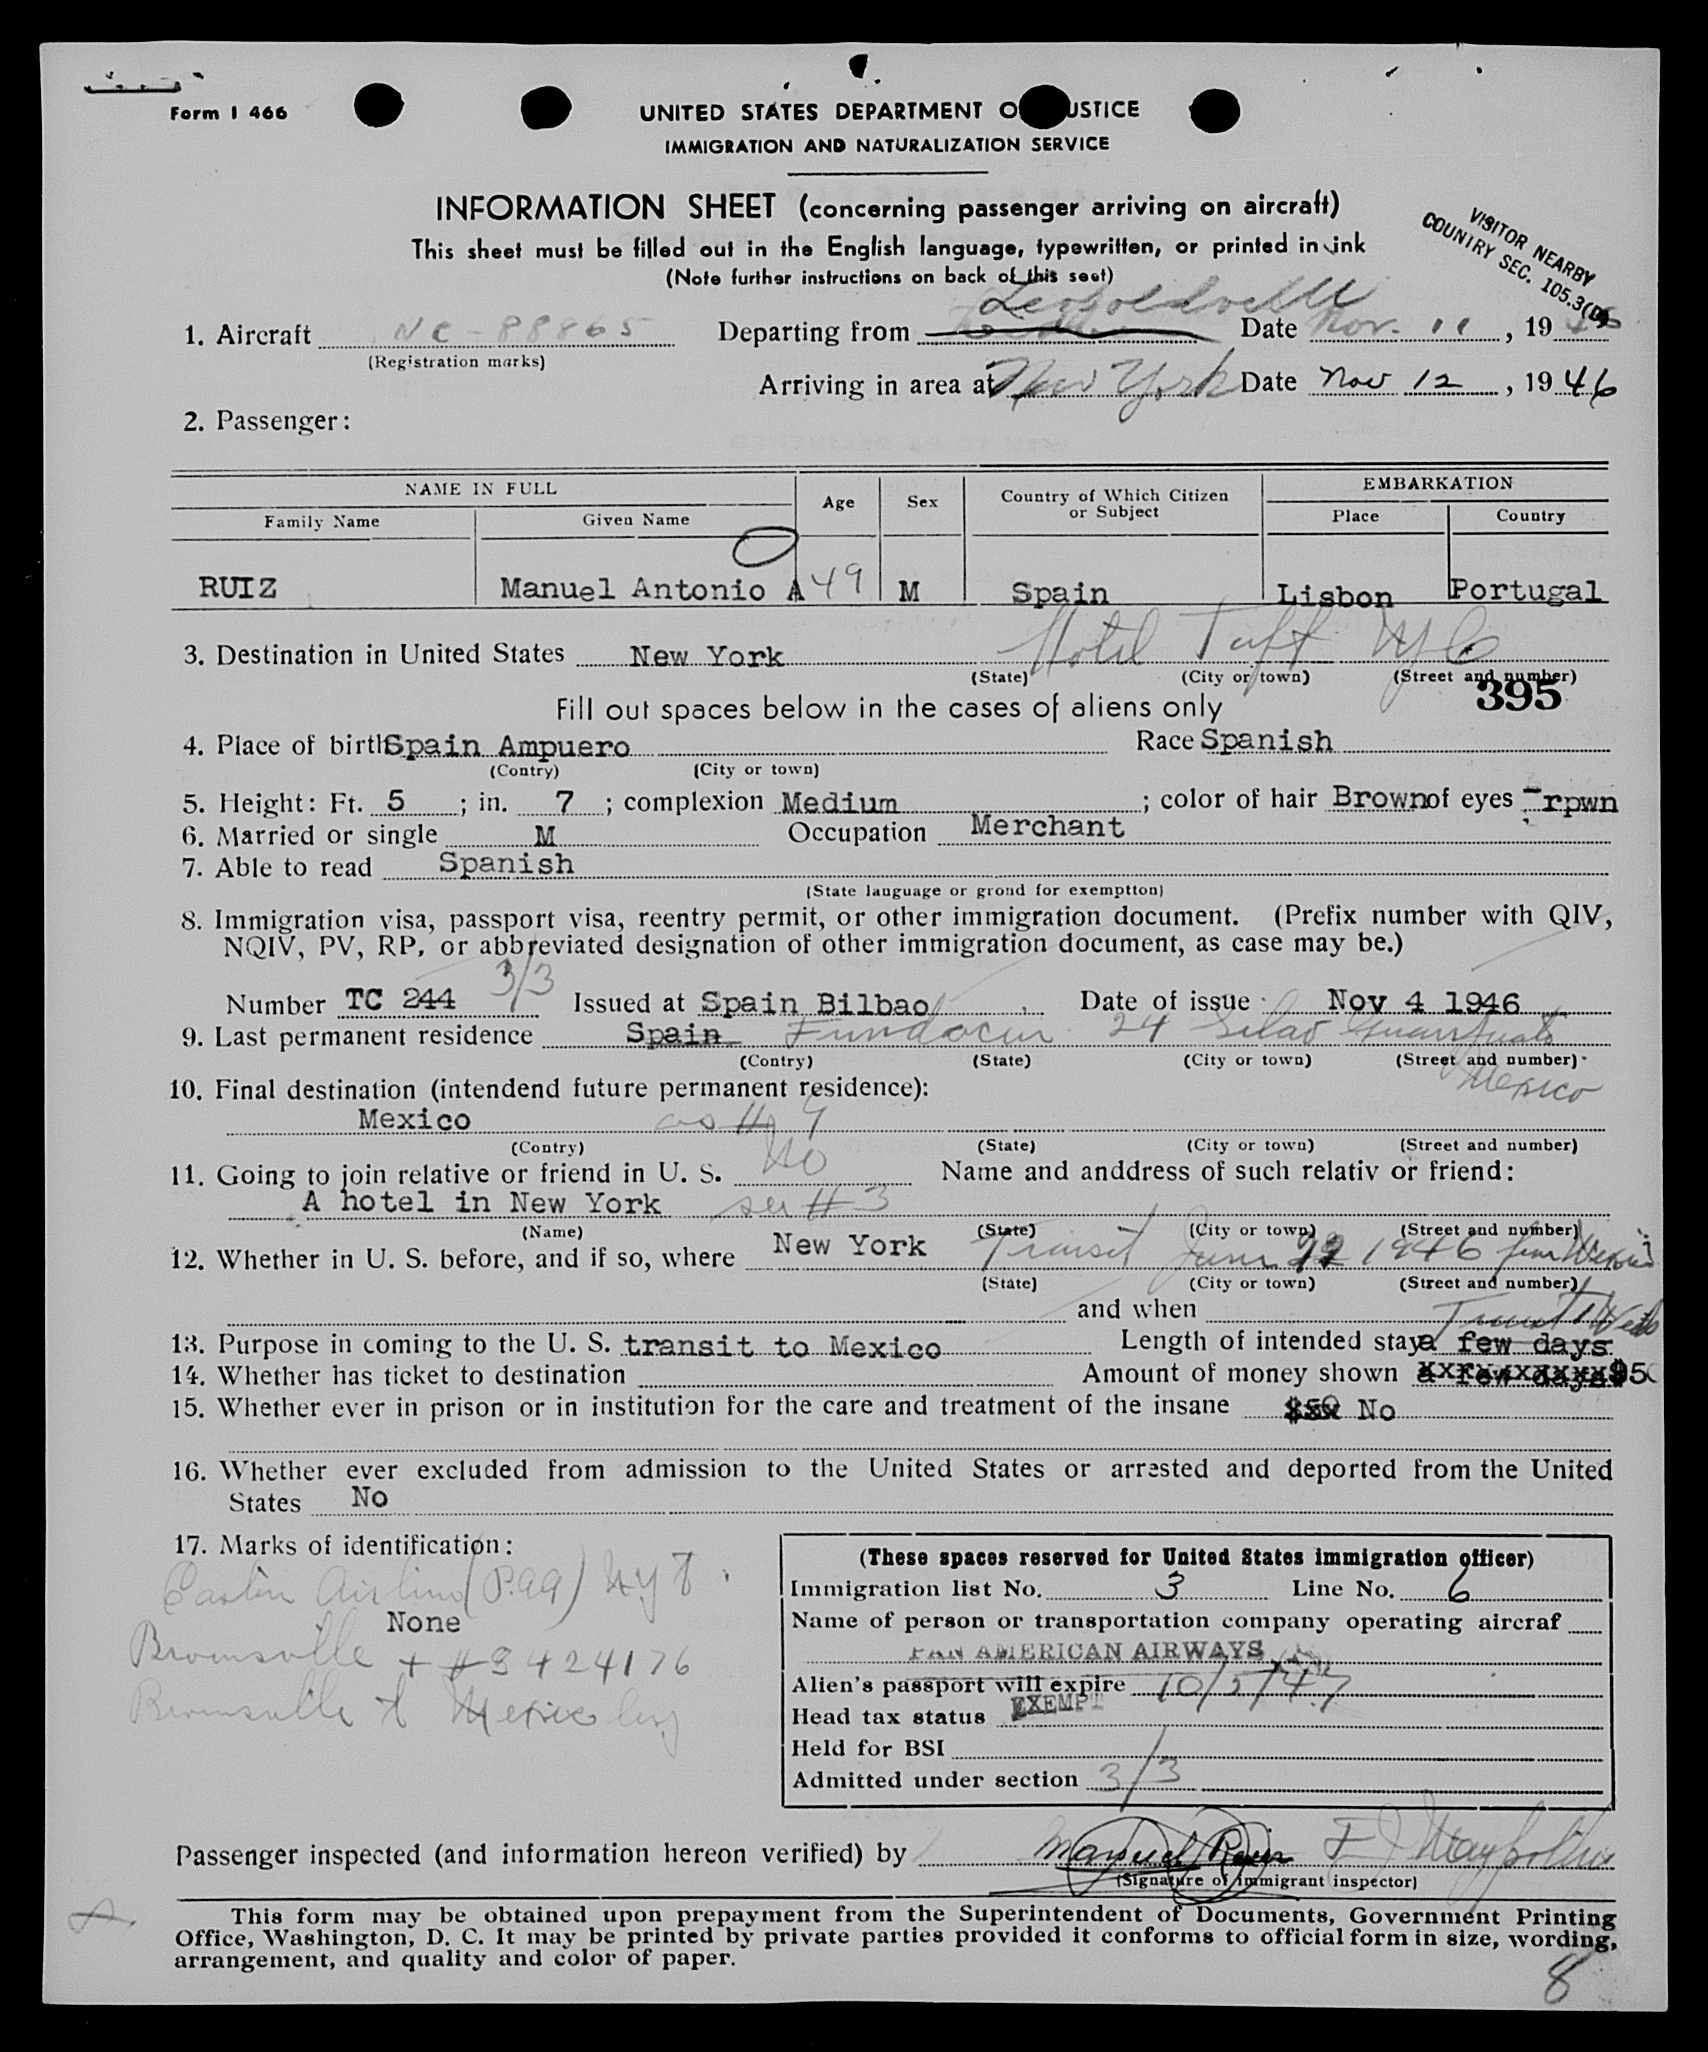 Form I 466
UNITED STATES DEPARTMENT O USTICE
IMMIGRATION AND NATURALIZATION SERVICE
INFORMATION SHEET (concerning passenger arriving on aircraft)
This sheet must be filled out in the English language, typewritten, or printed in ink
(Note further instructions on back of this seet)
VISITOR NEARBY
COUNTRY SEC. 105.3(D)
Leopoldville
1. Aircraft NC-88865 Departing from Date Nov. 11, 19 46
(Registration marks)
Arriving in area at New York Date Nov 12, 19 46
2. Passenger:
NAME IN FULL Age Sex Country of Which Citizen or Subject EMBARKATION
Family Name Given Name Place Country
RUIZ Manuel Antonio A 49 M Spain Lisbon Portugal
3. Destination in United States New York Hotel Taft NYC
(State) (City or town) (Street and number)
395
Fill out spaces below in the cases of aliens only
4. Place of birth Spain Ampuero Race Spanish
(Contry) (City or town)
5. Height: Ft. 5 ; in. 7 ; complexion Medium ; color of hair Brown of eyes rpwn
6. Married or single M Occupation Merchant
7. Able to read Spanish
(State language or grond for exemptton)
8. Immigration visa, passport visa, reentry permit, or other immigration document. (Prefix number with QIV,
NQIV, PV, RP, or abbreviated designation of other immigration document, as case may be.)
Number TC 244 3/3 Issued at Spain Bilbao Date of issue Nov 4 1946
9. Last permanent residence Spain 24 Silao Guanajuato
(Contry) (State) (City or town) (Street and number)
Mexico
10. Final destination (intendend future permanent residence):
Mexico as # 9
(Contry) (State) (City or town) (Street and number)
11. Going to join relative or friend in U. S. No Name and anddress of such relativ or friend:
A hotel in New York see # 3
(Name) (State) (City or town) (Street and number)
12. Whether in U. S. before, and if so, where New York Transit June 1946
(State) (City or town) (Street and number)
and when
Transit
13. Purpose in coming to the U. S. transit to Mexico Length of intended stay a few days
14. Whether has ticket to destination Amount of money shown $50
15. Whether ever in prison or in institution for the care and treatment of the insane No
16. Whether ever excluded from admission to the United States or arrested and deported from the United
States No
17. Marks of identification:
None
Brownsville + #3424176
Brownsville to Mexico
(These spaces reserved for United States immigration officer)
Immigration list No. 3 Line No. 6
Name of person or transportation company operating aircraf
PAN AMERICAN AIRWAYS
Alien's passport will expire 10/5/47
Head tax status EXEMPT
Held for BSI
Admitted under section 3/3
Passenger inspected (and information hereon verified) by Manuel
(Signature of immigrant inspector)
This form may be obtained upon prepayment from the Superintendent of Documents, Government Printing
Office, Washington, D. C. It may be printed by private parties provided it conforms to official form in size, wording,
arrangement, and quality and color of paper.
8